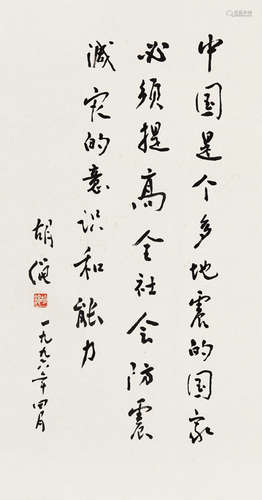 中国是个多地震的国家
必须提高全社会防震
减灾的意识和能力
胡绳
一九九六年四月